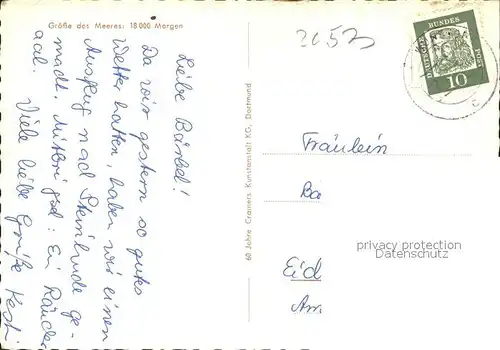 Größe des Meeres: 18 000 Morgen
Liebe Bärbel!
Da wir gestern so gutes
Wetter hatten, haben wir einen
Ausflug nach Steinhude ge-
macht. Mitbringsel: Ein Räucher
aal.
Viele liebe Grüße
60 Jahre Cramers Kunstanstalt KG, Dortmund
DEUTSCHE BUNDES POST
10
Fräulein
Bä
Eid
Am
privacy protection
Datenschutz